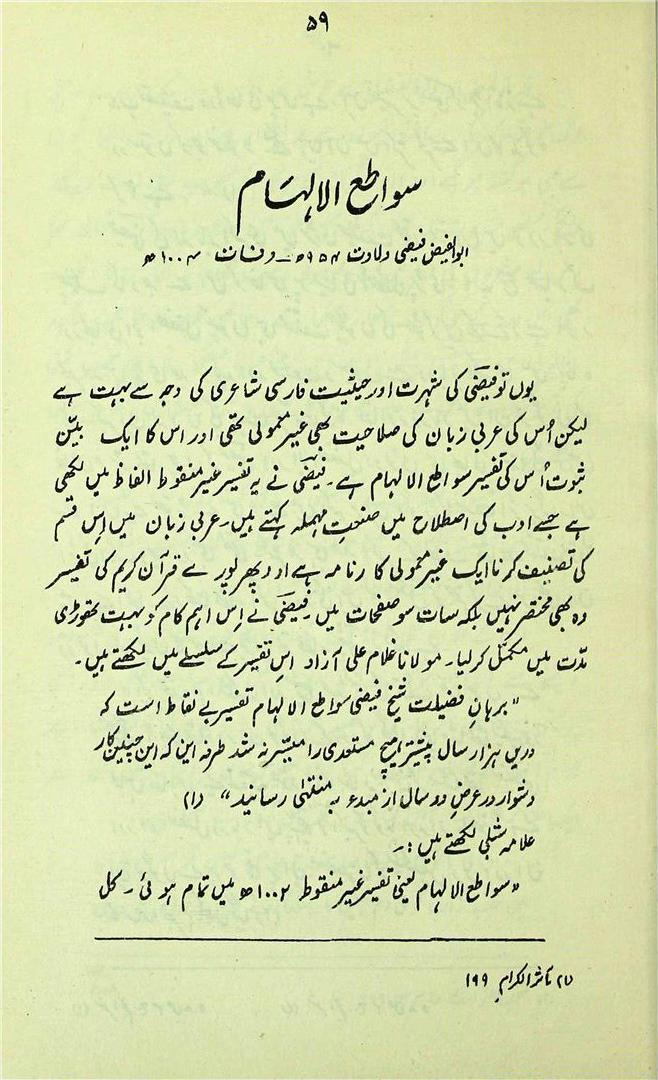 ۵۹
سواطع الالہام
ابوالفیض فیضی ولادت ۹۵۴ھ ــ وفات ۱۰۰۴ھ
یوں تو فیضی کی شہرت اور حیثیت فارسی شاعری کی وجہ سے بہت ہے
لیکن اُس کی عربی زبان کی صلاحیت بھی غیر معمولی تھی اور اس کا ایک بیّن
ثبوت اُس کی تفسیر سواطع الالہام ہے۔ فیضی نے یہ تفسیر غیر منقوط الفاظ میں لکھی
ہے جسے ادب کی اصطلاح میں صنعتِ مہملہ کہتے ہیں۔ عربی زبان میں اِس قسم
کی تصنیف کرنا ایک غیر معمولی کارنامہ ہے اور پھر پورے قرآن کریم کی تفسیر
وہ بھی مختصر نہیں بلکہ سات سو صفحات میں۔ فیضی نے اِس اہم کام کو بہت تھوڑی
مدّت میں مکمّل کر لیا۔ مولانا غلام علی آزاد اس تفسیر کے سلسلے میں لکھتے ہیں۔
"برہانِ فضیلت شیخ فیضی سواطع الالہام تفسیر بے نقاط است کہ
دریں ہزار سال پیشتر ہیچ مستعدی را میسّر نہ شد طرفہ این کہ این چنین کار
دشوار در عرضِ دو سال از مبدء بہ منتہٰی رسانید" (۱)
علامہ شبلی لکھتے ہیں :۔
"سواطع الالہام یعنی تفسیر غیر منقوط ۱۰۰۲ھ میں تمام ہوئی۔ کل
(۱) مآثر الکرام ۱۹۹